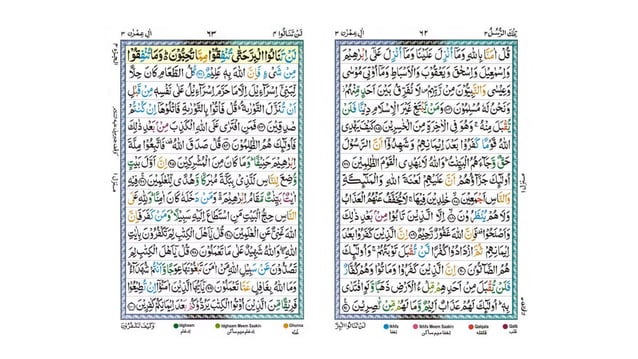 تِلْكَ الرُّسُلُ ٣ ٦٢ اٰلِ عِمْرٰن ٣
قُلْ اٰمَنَّا بِاللّٰهِ وَمَاۤ اُنْزِلَ عَلَيْنَا وَمَاۤ اُنْزِلَ عَلٰۤى اِبْرٰهِيْمَ
وَاِسْمٰعِيْلَ وَاِسْحٰقَ وَيَعْقُوْبَ وَالْاَسْبَاطِ وَمَاۤ اُوْتِيَ مُوْسٰى
وَعِيْسٰى وَالنَّبِيُّوْنَ مِنْ رَّبِّهِمْ لَا نُفَرِّقُ بَيْنَ اَحَدٍ مِّنْهُمْ
وَنَحْنُ لَهٗ مُسْلِمُوْنَ وَمَنْ يَّبْتَغِ غَيْرَ الْاِسْلَامِ دِيْنًا فَلَنْ
يُّقْبَلَ مِنْهُ وَهُوَ فِي الْاٰخِرَةِ مِنَ الْخٰسِرِيْنَ كَيْفَ يَهْدِي
اللّٰهُ قَوْمًا كَفَرُوْا بَعْدَ اِيْمَانِهِمْ وَشَهِدُوْۤا اَنَّ الرَّسُوْلَ
حَقٌّ وَّجَآءَهُمُ الْبَيِّنٰتُ وَاللّٰهُ لَا يَهْدِي الْقَوْمَ الظّٰلِمِيْنَ
اُولٰٓئِكَ جَزَآؤُهُمْ اَنَّ عَلَيْهِمْ لَعْنَةَ اللّٰهِ وَالْمَلٰٓئِكَةِ
وَالنَّاسِ اَجْمَعِيْنَ خٰلِدِيْنَ فِيْهَا لَا يُخَفَّفُ عَنْهُمُ الْعَذَابُ
وَلَا هُمْ يُنْظَرُوْنَ اِلَّا الَّذِيْنَ تَابُوْا مِنْۢ بَعْدِ ذٰلِكَ
وَاَصْلَحُوْا فَاِنَّ اللّٰهَ غَفُوْرٌ رَّحِيْمٌ اِنَّ الَّذِيْنَ كَفَرُوْا بَعْدَ
اِيْمَانِهِمْ ثُمَّ ازْدَادُوْا كُفْرًا لَّنْ تُقْبَلَ تَوْبَتُهُمْ وَاُولٰٓئِكَ
هُمُ الضَّآلُّوْنَ اِنَّ الَّذِيْنَ كَفَرُوْا وَمَاتُوْا وَهُمْ كُفَّارٌ
فَلَنْ يُّقْبَلَ مِنْ اَحَدِهِمْ مِّلْءُ الْاَرْضِ ذَهَبًا وَّلَوِ افْتَدٰى
بِهٖ اُولٰٓئِكَ لَهُمْ عَذَابٌ اَلِيْمٌ وَّمَا لَهُمْ مِّنْ نّٰصِرِيْنَ
لَنْ تَنَالُوا الْبِرَّ
Ikhfa Ikhfa Meem Saakin Qalqala Qalb
اخفا اخفا میم ساکن قلقلہ قلب
لَنْ تَنَالُوا ٤ ٦٣ اٰلِ عِمْرٰن ٣
لَنْ تَنَالُوا الْبِرَّ حَتّٰى تُنْفِقُوْا مِمَّا تُحِبُّوْنَ وَمَا تُنْفِقُوْا
مِنْ شَيْءٍ فَاِنَّ اللّٰهَ بِهٖ عَلِيْمٌ كُلُّ الطَّعَامِ كَانَ حِلًّا
لِّبَنِيْۤ اِسْرَآءِيْلَ اِلَّا مَا حَرَّمَ اِسْرَآءِيْلُ عَلٰى نَفْسِهٖ مِنْ قَبْلِ
اَنْ تُنَزَّلَ التَّوْرٰىةُ قُلْ فَاْتُوْا بِالتَّوْرٰىةِ فَاتْلُوْهَاۤ اِنْ كُنْتُمْ
صٰدِقِيْنَ فَمَنِ افْتَرٰى عَلَى اللّٰهِ الْكَذِبَ مِنْۢ بَعْدِ ذٰلِكَ
فَاُولٰٓئِكَ هُمُ الظّٰلِمُوْنَ قُلْ صَدَقَ اللّٰهُ فَاتَّبِعُوْا مِلَّةَ
اِبْرٰهِيْمَ حَنِيْفًا وَمَا كَانَ مِنَ الْمُشْرِكِيْنَ اِنَّ اَوَّلَ بَيْتٍ
وُّضِعَ لِلنَّاسِ لَلَّذِيْ بِبَكَّةَ مُبٰرَكًا وَّهُدًى لِّلْعٰلَمِيْنَ فِيْهِ
اٰيٰتٌۢ بَيِّنٰتٌ مَّقَامُ اِبْرٰهِيْمَ وَمَنْ دَخَلَهٗ كَانَ اٰمِنًا وَلِلّٰهِ عَلَى
النَّاسِ حِجُّ الْبَيْتِ مَنِ اسْتَطَاعَ اِلَيْهِ سَبِيْلًا وَمَنْ كَفَرَ فَاِنَّ
اللّٰهَ غَنِيٌّ عَنِ الْعٰلَمِيْنَ قُلْ يٰۤاَهْلَ الْكِتٰبِ لِمَ تَكْفُرُوْنَ بِاٰيٰتِ
اللّٰهِ وَاللّٰهُ شَهِيْدٌ عَلٰى مَا تَعْمَلُوْنَ قُلْ يٰۤاَهْلَ الْكِتٰبِ لِمَ
تَصُدُّوْنَ عَنْ سَبِيْلِ اللّٰهِ مَنْ اٰمَنَ تَبْغُوْنَهَا عِوَجًا وَّاَنْتُمْ شُهَدَآءُ
وَمَا اللّٰهُ بِغَافِلٍ عَمَّا تَعْمَلُوْنَ يٰۤاَيُّهَا الَّذِيْنَ اٰمَنُوْۤا اِنْ تُطِيْعُوْا
فَرِيْقًا مِّنَ الَّذِيْنَ اُوْتُوا الْكِتٰبَ يَرُدُّوْكُمْ بَعْدَ اِيْمَانِكُمْ كٰفِرِيْنَ
وَكَيْفَ تَكْفُرُوْنَ
Idgham Idghaam Meem Saakin Ghunna
ادغام ادغام میم ساکن غنہ